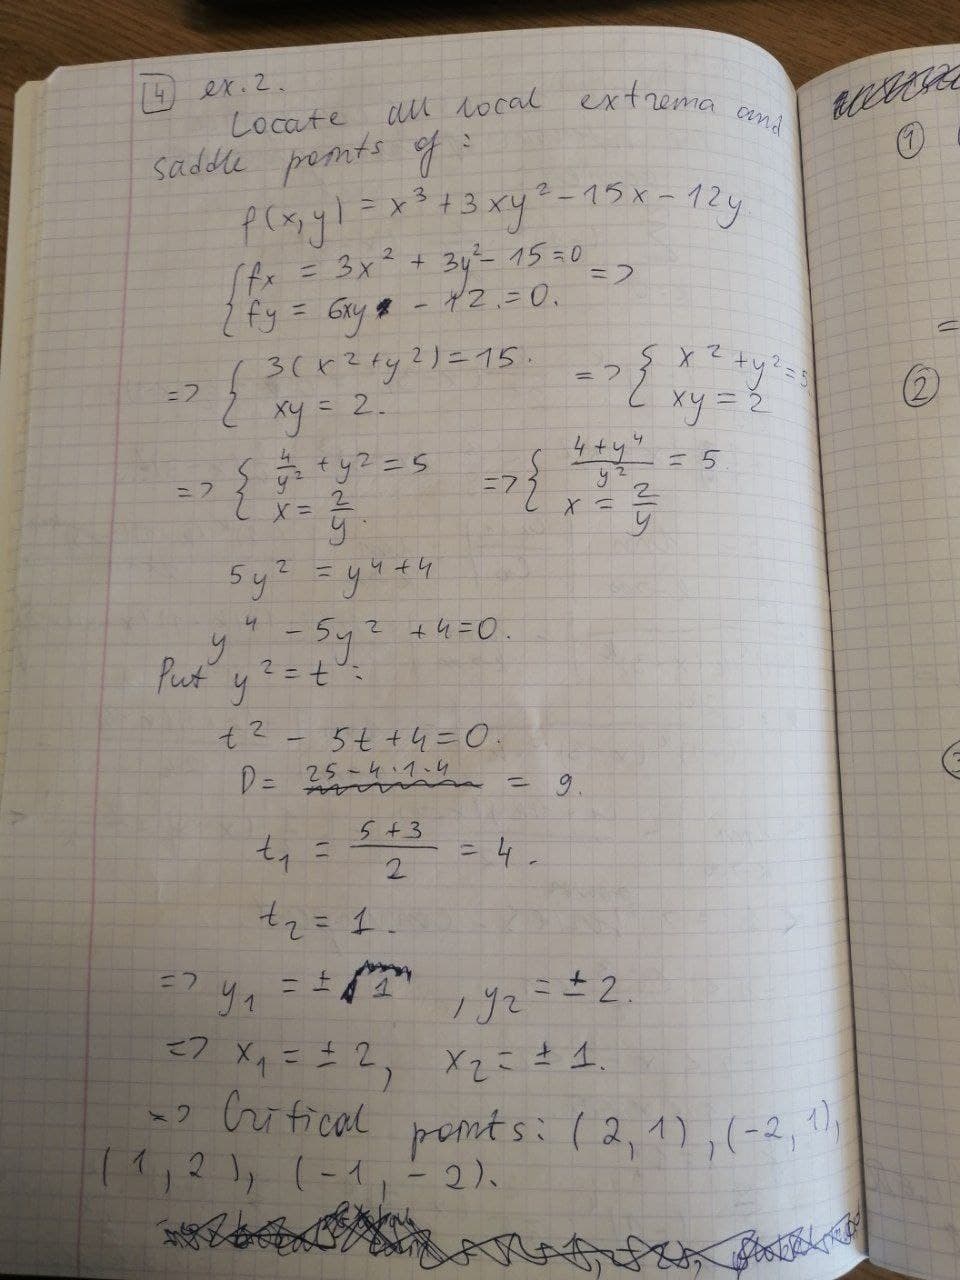 4 ex.2.
Locate all local extrema and
saddle points of:
f(x,y) = x³ + 3xy² - 15x - 12y
{ fx = 3x² + 3y² - 15 = 0 =>
{ fy = 6xy - 12 = 0.
=> { 3(x² + y²) = 15. => { x² + y² = 5
{ xy = 2. { xy = 2
=> { 4/y² + y² = 5 => { (4 + y⁴)/y² = 5
{ x = 2/y. { x = 2/y
5y² = y⁴ + 4
y⁴ - 5y² + 4 = 0.
Put y² = t:
t² - 5t + 4 = 0.
D = 25 - 4·1·4 = 9.
t₁ = (5 + 3)/2 = 4.
t₂ = 1.
=> y₁ = ±√1, y₂ = ±2.
=> x₁ = ±2, x₂ = ±1.
=> Critical points: (2, 1), (-2, 1),
(1, 2), (-1, -2).
1
=
2